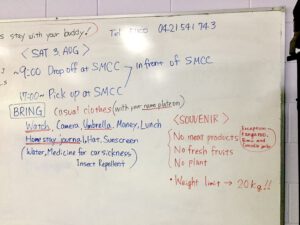 s stay with your buddy!
Tel 0421 541 743
< SAT. 3. AUG >
~9:00 Drop off at SMCC
in front of SMCC
17:00~ Pick up at SMCC
BRING casual clothes (with your name plate on)
Watch, Camera, Umbrella, Money, Lunch
Home stay journal, Hat, Sunscreen
(Water, Medicine for car sickness
Insect Repellent)
<SOUVENIR>
No meat products
No fresh fruits
No plant
Exception
• Weight limit → 20kg!!